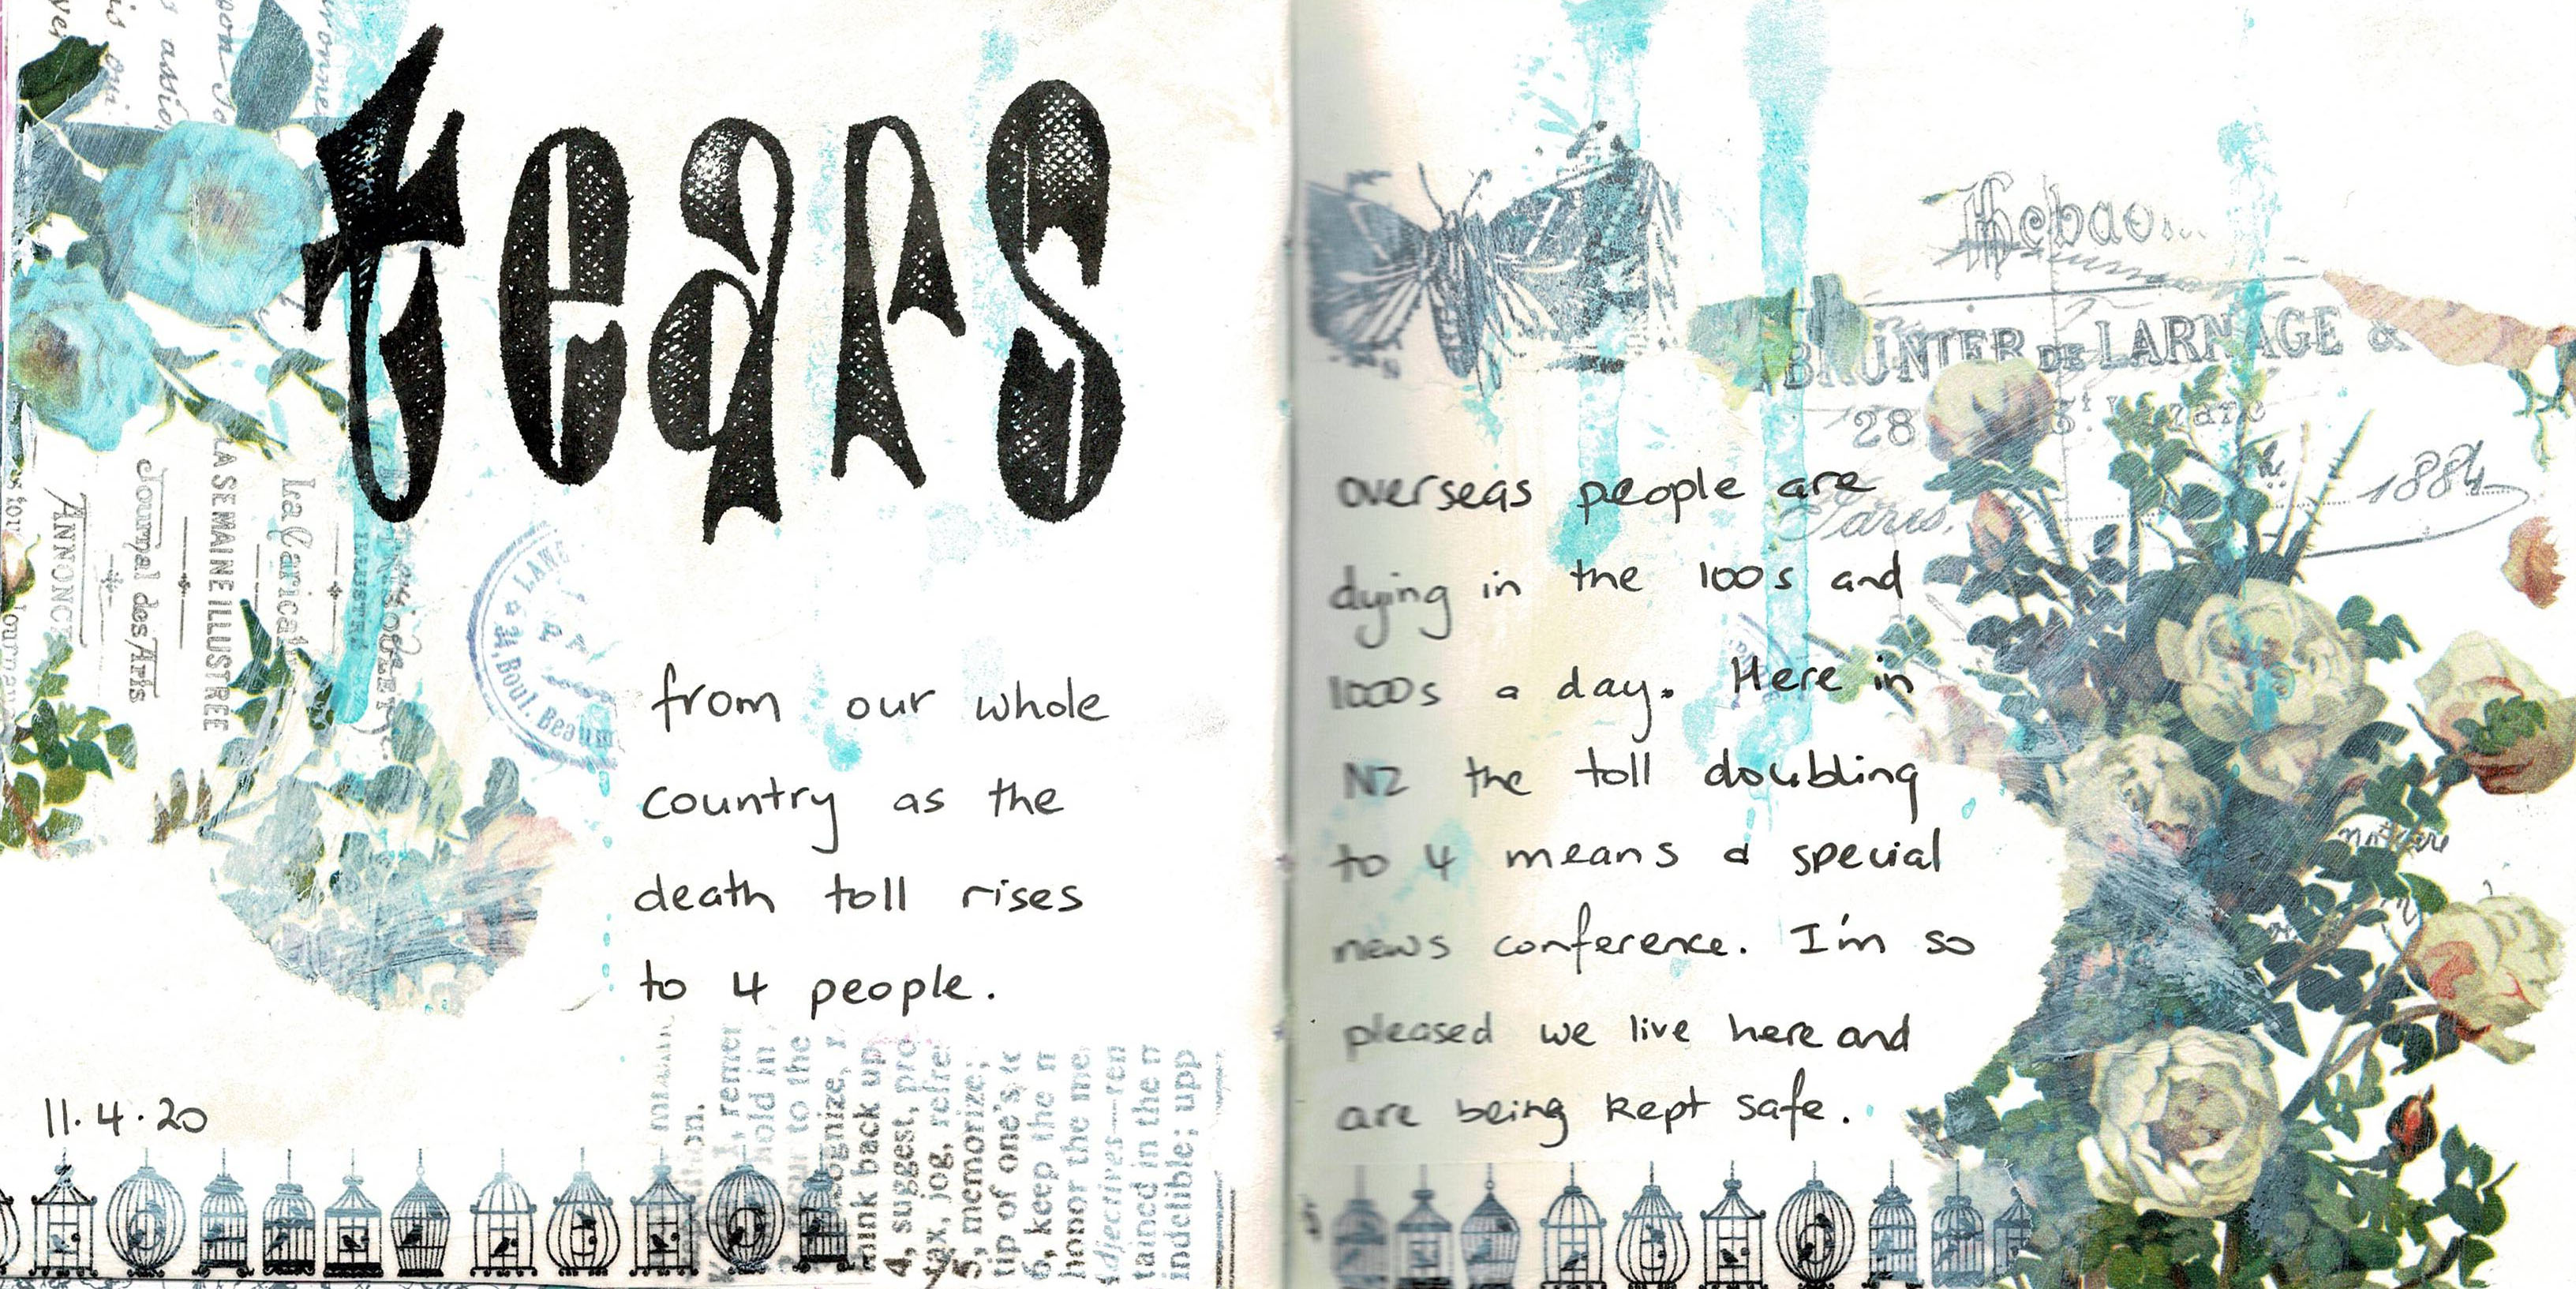 tears
from our whole
country as the
death toll rises
to 4 people.
11.4.20
ANNONCE
Journal des Arts
LA SEMAINE ILLUSTRÉE
La Caricat
34, Boul. Beaum
, remem
hold in
to the
ognize, r
think back up
4, suggest, pro
jog, refre
5, memorize;
tip of one's
6, keep the
honor the me
adjectives—ren
tained in the
indelible; upp
BRUNIER DE LARNAGE &
28
Paris, 1884
overseas people are
dying in the 100s and
1000s a day. Here in
NZ the toll doubling
to 4 means a special
news conference. I'm so
pleased we live here and
are being kept safe.